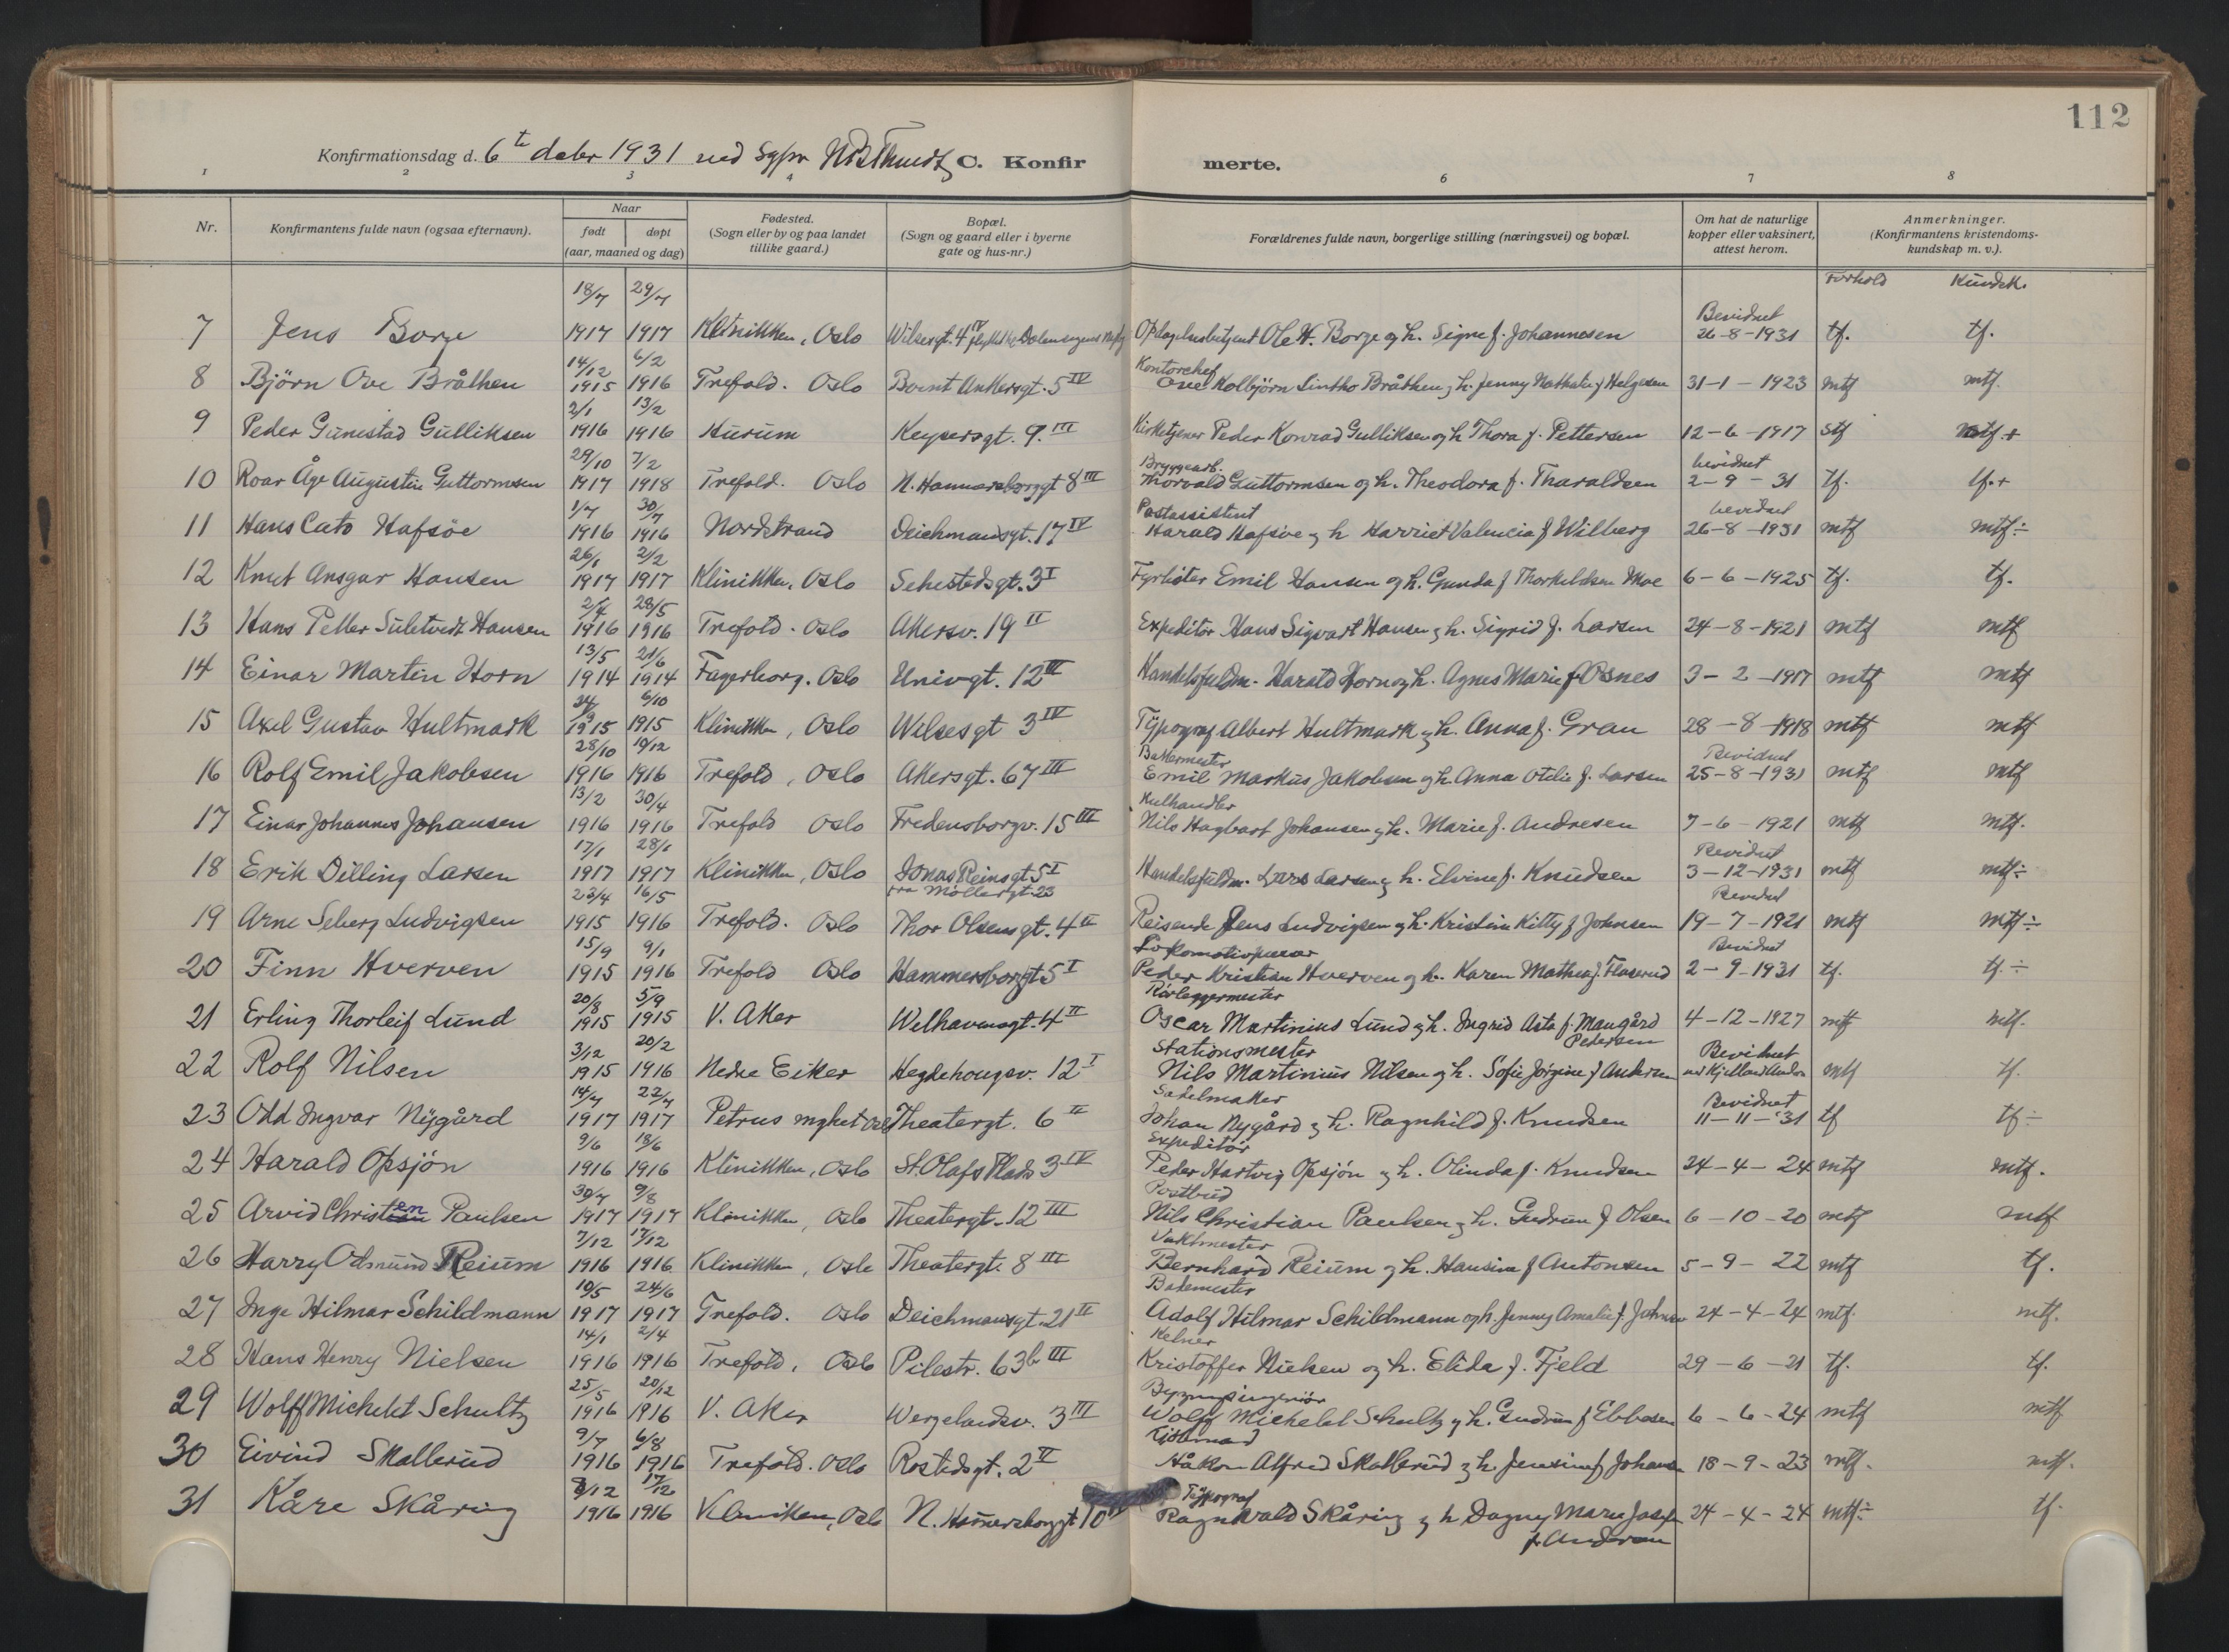 112
Konfirmationsdag d. 6te debr 1931 ved Sgpr C. Konfirmerte.
1 2 3 4 6 7 8
Nr. Konfirmantens fulde navn (ogsaa efternavn). Naar født døpt (aar, maaned og dag) Fødested. (Sogn eller by og paa landet tillike gaard.) Bopæl. (Sogn og gaard eller i byerne gate og hus-nr.) Forældrenes fulde navn, borgerlige stilling (næringsvei) og bopæl. Om hat de naturlige kopper eller vaksinert, attest herom. Anmerkninger. (Konfirmantens kristendoms-kundskap m. v.).
Forhold Kundsk.
18/7 29/7 Bevidnet
7 Jens Borge 1917 1917 Klinikken, Oslo Wilsesgt. 4 IV Ole H. Borge og h. Signe f. Johannesen 26-8-1931 tf. tf.
14/12 6/2 Kontorchef
8 Björn Ove Bråthen 1915 1916 Trefold. Oslo Bernt Ankersgt. 5 IV Ove Kolbjörn Lintho Bråthen og h. Jenny Nathalie f Helgesen 31-1-1923 mtf mtf.
2/1 13/2
9 Peder Gunestad Gulliksen 1916 1916 Hurum Keysersgt. 9. III Kirketjener Peder Konrad Gulliksen og h Thora f. Pettersen 12-6-1917 stf mtf.+
29/10 7/2 Bryggearb. bevidnet
10 Roar Åge Augustin Guttormsen 1917 1918 Trefold. Oslo N. Hammersborggt 8 III Thorvald Guttormsen og h. Theodora f. Tharaldsen 2-9-31 tf. tf.+
1/7 30/7 Postassistent bevidnet
11 Hans Cato Hafsöe 1916 1916 Nordstrand Deichmansgt. 17 IV Harald Hafsöe og h Harriet Valencia f Wilberg 26-8-1931 mtf mtf÷
26/1 2/2
12 Knut Ansgar Hansen 1917 1917 Klinikken, Oslo Sehestedsgt. 3 I Fyrbøter Emil Hansen og h. Gunda f Thorkildsen Moe 6-6-1925 tf. tf.
28/5
13 Hans Petter Suletvedt Hansen 1916 1916 Trefold. Oslo Akersv. 19 II Expeditör Hans Sigvart Hansen og h. Sigrid f. Larsen 24-8-1921 mtf mtf
13/5 21/6
14 Einar Martin Horn 1914 1914 Fagerborg. Oslo Univgt. 12 III Handelsfuldm. Harald Horn og h. Agnes Marie f Osnes 3-2-1917 mtf mtf
6/10
15 Axel Gustav Hultmark 1915 1915 Klinikken, Oslo Wilsesgt 3 IV Typograf Albert Hultmark og h. Anna f. Gran 28-8-1918 mtf mtf
28/10 Bakermester Bevidnet
16 Rolf Emil Jakobsen 1916 1916 Trefold, Oslo Akersgt. 67 III Emil Markus Jakobsen og h. Anna Otelie f. Larsen 25-8-1931 mtf mtf
13/2 30/4 Kulhandler
17 Einar Johannes Johansen 1916 1916 Trefold Oslo Fredensborgv. 15 III Nils Hagbart Johansen og h. Marie f. Andresen 7-6-1921 mtf mtf.
17/1 28/1 Bevidnet
18 Erik Dilling Larsen 1917 1917 Klinikken, Oslo Jonas Reinsgt. 5 I Handelsfuldm. Lars Larsen og h. Elvine f. Knudsen 3-12-1931 mtf mtf÷
23/4 16/5 fra Møllergt. 23 Bevidnet
19 Arne Seberg Ludvigsen 1915 1916 Trefold. Oslo Thor Olsensgt. 4 II Reisende Jens Ludvigsen og h. Kristine Kitty f Johnsen 19-7-1921 mtf mtf÷
15/9 9/1 Bevidnet
20 Finn Hverven 1915 1916 Trefold Oslo Hammersborggt 5 I Peder Kristian Hverven og h. Karen Mathea f. 2-9-1931 tf. tf.÷
20/8 5/9 Rørleggermester
21 Erling Thorleif Lund 1915 1915 V. Aker Welhavensgt. 4 II Oscar Martinius Lund og h. Ingrid Asta f. Maugård Pedersen 4-12-1927 mtf mtf.
3/12 20/2 Stationsmester Bevidnet
22 Rolf Nilsen 1915 1916 Nedre Eiker Hegdehougsv. 12 I Nils Martinius Nilsen og h. Sofie Jörgine f Andersen mtf tf.
14/7 22/7 Sadelmaker Bevidnet
23 Odd Ingvar Nygård 1917 1917 Petrus mghet Oslo Theatergt. 6 II Johan Nygård og h. Ragnhild f. Knudsen 11-11-'31 tf tf÷
9/6 18/6 Expeditör
24 Harald Opsjön 1916 1916 Klinikken, Oslo St. Olafs Plads 3 IV Peder Hartvig Opsjön og h. Olinda f. Knudsen 24-4-24 mtf mtf.
30/7 9/8 Postbud
25 Arvid Christen Paulsen 1917 1917 Klinikken, Oslo Theatergt. 12 III Nils Christian Paulsen og h. Gudrun f Olsen 6-10-20 mtf mtf
7/12 17/12 Vaktmester
26 Harry Odmund Reium 1916 1916 Klinikken, Oslo Theatergt. 8 III Bernhard Reium og h. Hansine f Antonsen 5-9-22 mtf tf.
10/5 24/6 Bademester
27 Inge Hilmar Schildmann 1917 1917 Trefold. Oslo Deichmansgt. 21 II Adolf Hilmar Schildmann og h. Jenny Amalie f. Johnsen 24-4-24 mtf. mtf.
14/1 2/4 Kelner
28 Hans Henry Nielsen 1916 1916 Trefold, Oslo Pilestr. 63b III Kristoffer Nielsen og h. Elida f. Fjeld 29-6-21 tf. tf.
25/5 20/12 Bygningsingeniör
29 Wolff Michelet Schultz 1916 1916 V. Aker Wergelandsv. 3 III Wolff Michelet Schultz og h. Gudrun f Ebbesen 6-6-24 mtf mtf
9/7 6/8
30 Eivind Skallerud 1916 1916 Trefold. Oslo Rostedsgt. 2 Håkon Alfred Skallerud og h. Jensine f Johansen 18-9-23 mtf. mtf.
8/12 17/12 Typograf
31 Kåre Skåring 1916 1916 Kliniken, Oslo N. Hammersborggt 10 Ragnvald Skåring og h Dagny Marie f. Andersen 24-4-24 mtf÷ tf.